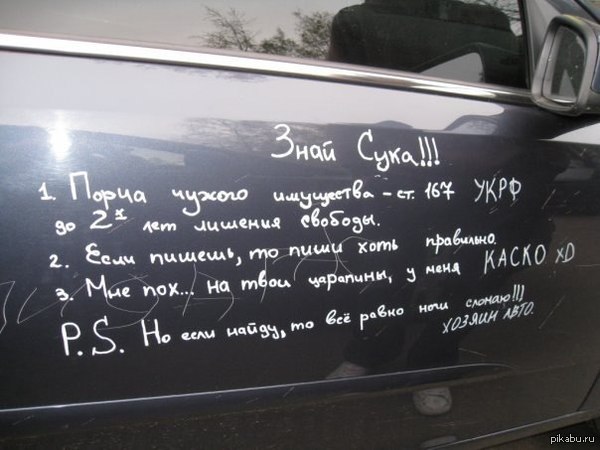 Знай Сука!!!
1. Порча чужого имущества – ст. 167 УКРФ
до 2х лет лишения свободы.
2. Если пишешь, то пиши хоть правильно.
3. Мне пох... на твои царапины, у меня КАСКО XD
P.S. Но если найду, то всё равно ноги сломаю!!!
ХОЗЯИН АВТО.
pikabu.ru